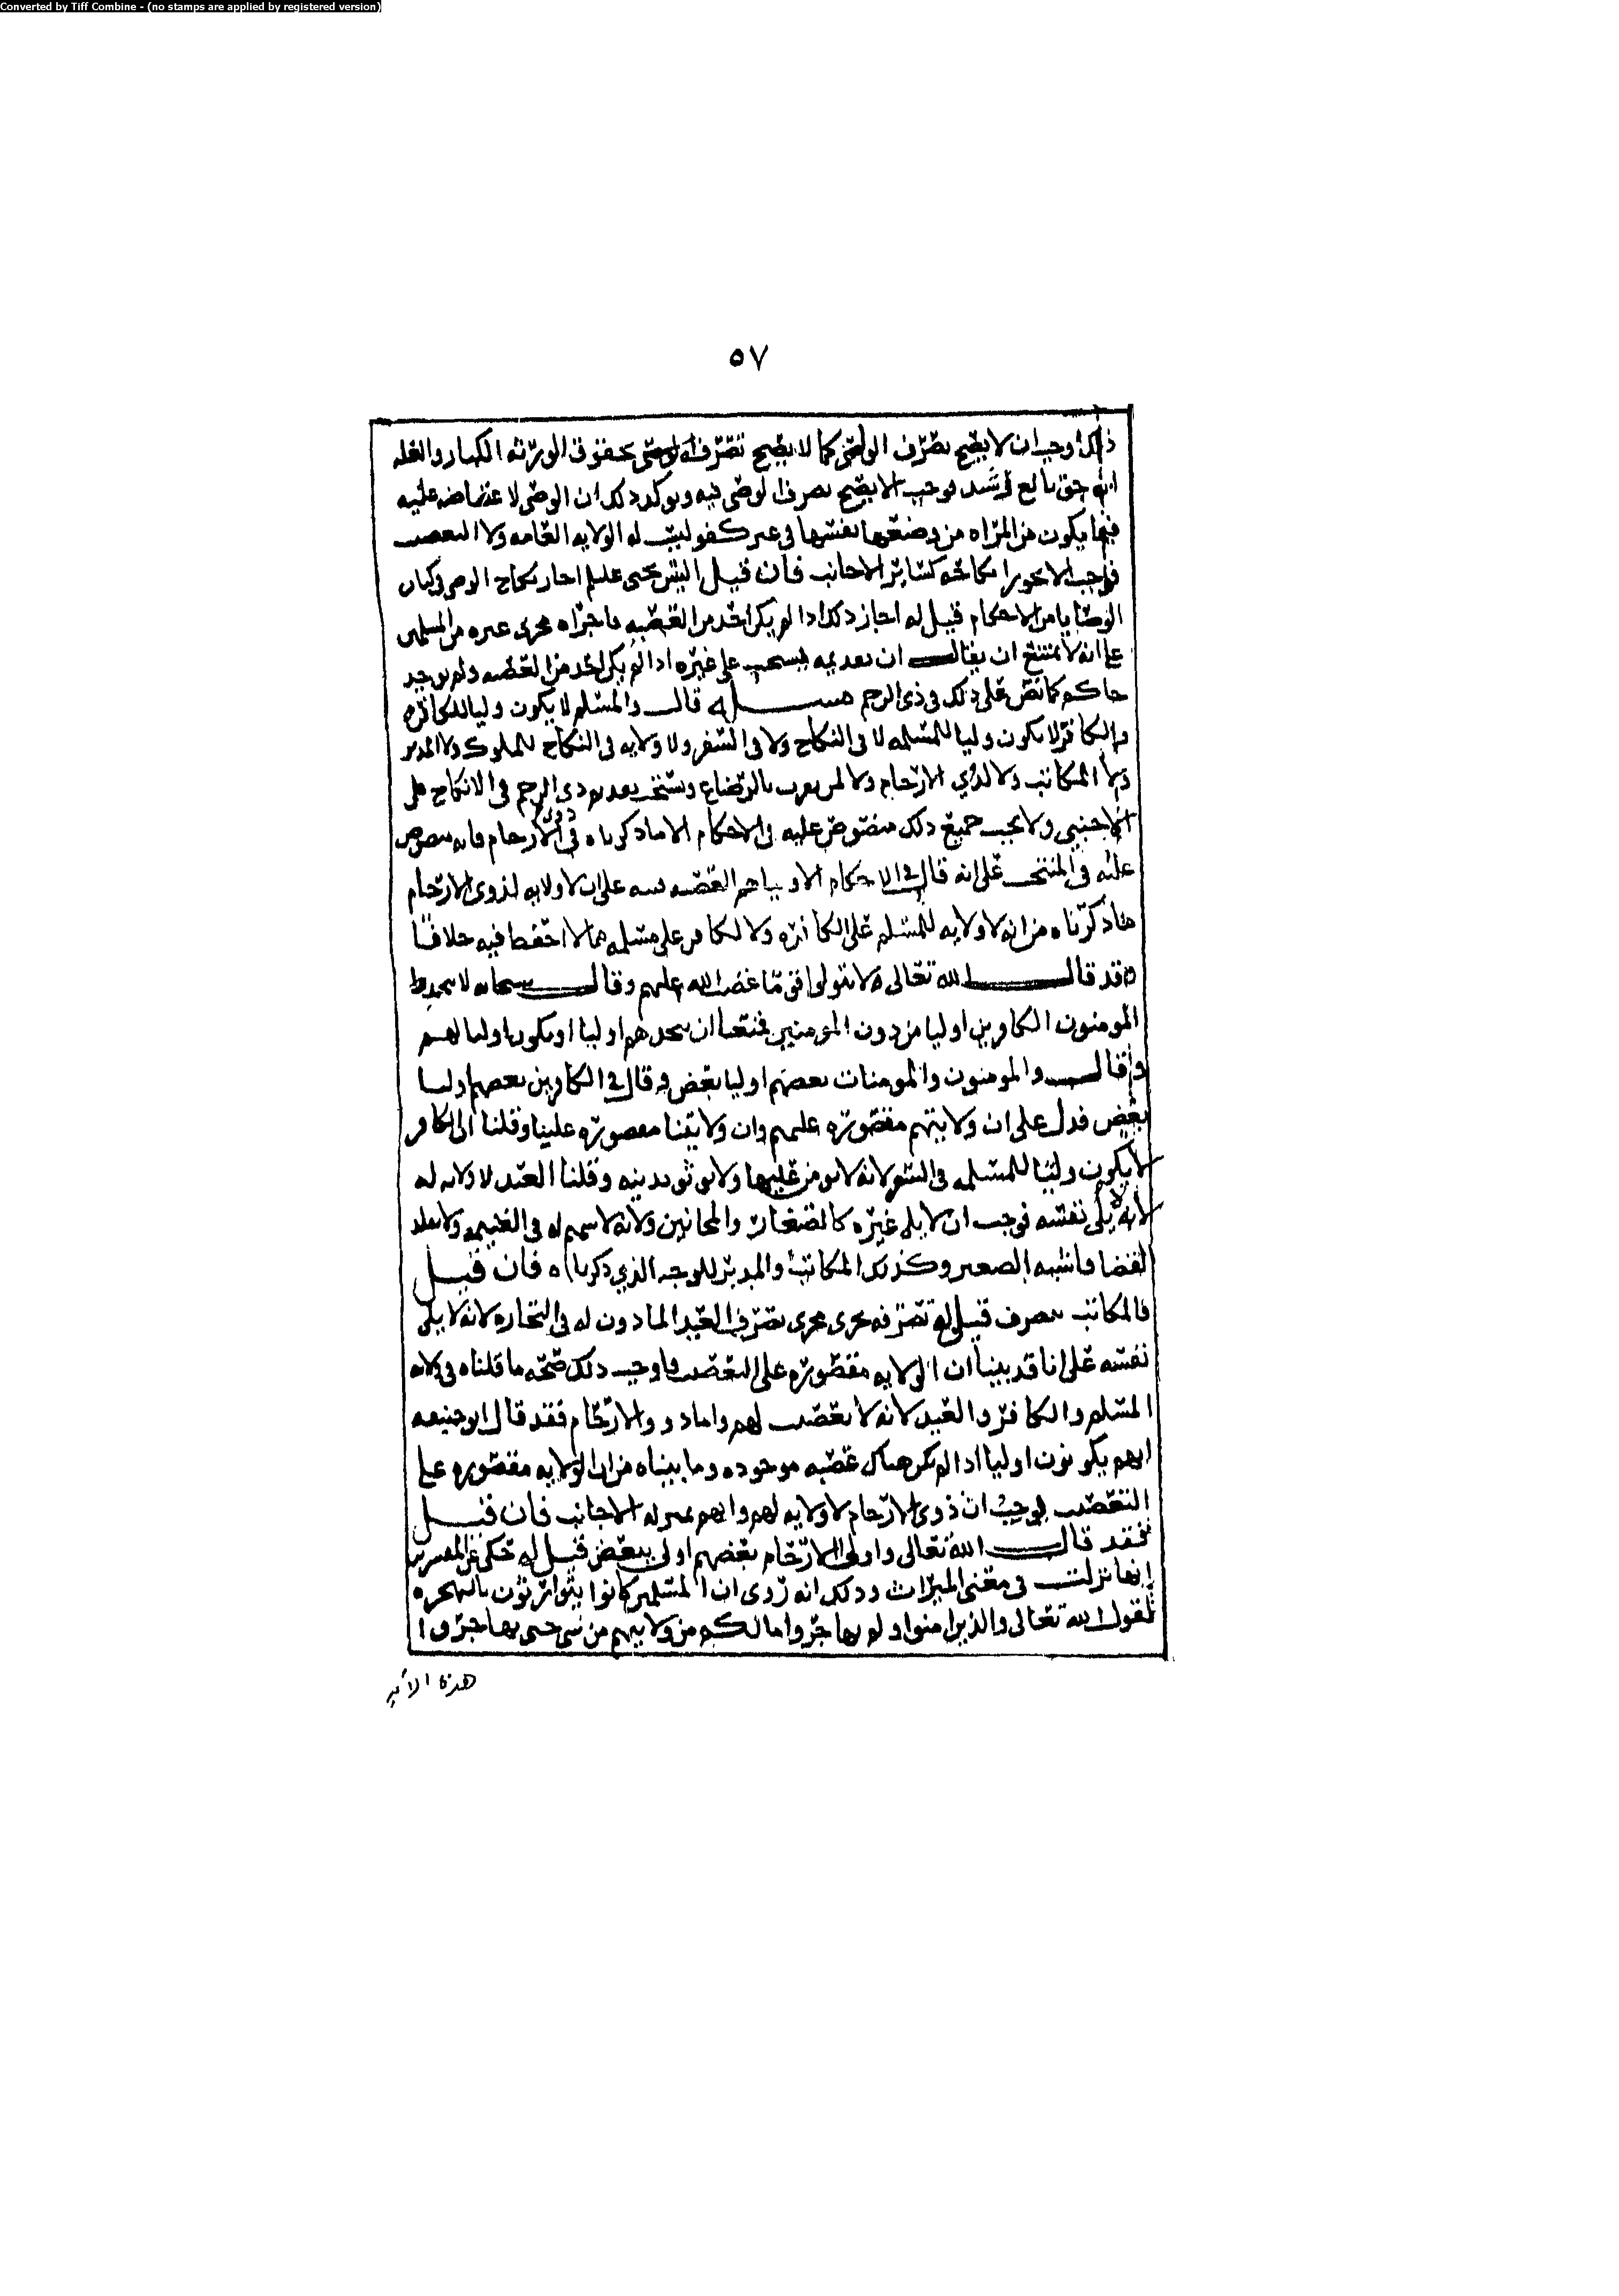 Converted by Tiff Combine - (no stamps are applied by registered version)
٥٧
ذلك وجب ان لا يصح تصرف الوصي كما لا يصح تصرف الوصي بحقوق الورثه الكبار والعله
انه حق بالغ رشيد فوجب الا يصح تصرف الوصي فيه ويوكد ذلك ان الوصي لا غضاضه عليه
فيما يكون من المراه من وضعها نفسها في غير كفو ليس له الولايه العامه ولا التعصيب
فوجب الا يجوز انكاحه كسائر الاجانب فان قيل اليس يحيى عليلم اجاز نكاح الوصي في كتاب
الوصايا من الاحكام قيل له اجاز ذلك اذا لم يكن احد من العصبه فاجراه مجرى غيره من المسلمين
على انه لا يمتنع ان يقال ان تقديمه يستحب على غيره اذا لم يكن احد من العصبه ولم يوجد
حاكم كما نص على ذلك في ذي الرحم مسئله قال والمسلم لا يكون وليا للكافره
والكافر لا يكون وليا للمسلمه لا في النكاح ولا في السفر ولا ولايه في النكاح للمملوك ولا المدبر
ولا المكاتب ولا لذوي الارحام ولا لمن يعرب بالرضاع ويستحب تقديم ذي الرحم في الانكاح على
الاجنبي ولا يجب جميع ذلك منصوص عليه في الاحكام الا ما ذكرناه في ذوي الارحام فانه منصوص
عليه في المنتخب على انه قال في الاحكام الاوليا هم العصبه نبه على ان لا ولايه لذوي الارحام
ما ذكرناه من انه لا ولايه للمسلم على الكافره ولا للكافر على مسلمه مما لا احفظ فيه خلافا
وقد قال الله تعالى لا تتولوا قوما غضب الله عليهم وقال سبحانه لا يتخذ
المومنون الكافرين اوليا من دون المومنين فمنعنا ان نتخذهم اوليا او يكونوا اوليا لهم
وقال والمومنون والمومنات بعضهم اوليا بعض وقال في الكافرين بعضهم اوليا
بعض فدل على ان ولايتهم مقصوره عليهم وان ولايتنا مقصوره علينا وقلنا ان الكافر
لا يكون وليا للمسلمه في السفر لانه لا يومن عليها ولا يوثق بدينه وقلنا العبد لا ولايه له
لانه لا يلي نفسه فوجب ان لا يلي غيره كالصغار والمجانين ولانه لا سهم له في الغنيمه ولا يقلد
القضا فاشبه الصغير وكذلك المكاتب والمدبر للوجه الذي ذكرناه فان قيل
فالمكاتب يتصرف قيل له تصرفه يجري مجرى تصرف العبد الماذون له في التجاره لانه لا يلي
نفسه على انا قد بينا ان الولايه مقصوره على التعصيب فاوجب ذلك صحه ما قلناه في ولايه
المسلم والكافر والعبد لانه لا تعصيب لهم واما ذوو الارحام فقد قال ابو حنيفه
انهم يكونون اوليا اذا لم تكن هناك عصبه موجوده وما بيناه من ان الولايه مقصوره على
التعصيب يوجب ان ذوي الارحام لا ولايه لهم وانهم بمنزله الاجانب فان قيل
فقد قال الله تعالى واولوا الارحام بعضهم اولى ببعض قيل له حكي عن المفسرين
انها نزلت في معنى الميراث وذلك انه روي ان المسلمين كانوا يتوارثون بالهجره
لقول الله تعالى والذين امنوا ولم يهاجروا ما لكم من ولايتهم من شي حتى يهاجروا
هذه الايه